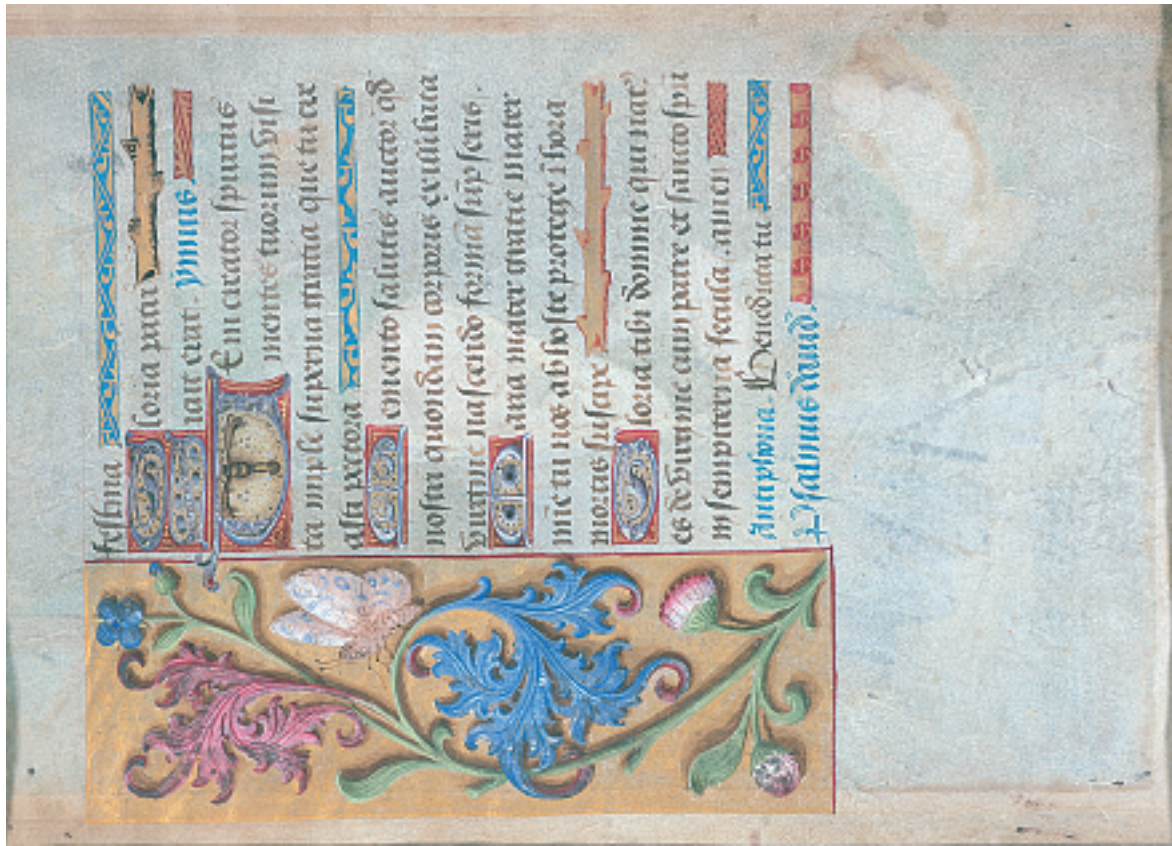 festina
loria patri
icut erat. ymnus
Veni creator spiritus
mentes tuorum visi
ta imple superna gratia que tu cre
asti pectora
emento salutis auctor qd
nostri quondam corporis ex illibata
virgine nascendo formā sūpseris.
aria mater gratie mater
mīe tu nos ab hoste protege ī hora
mortis suscipe
loria tibi domine qui nat9
es de virgine cum patre et sancto spū
in sempiterna secula. amen
Antiphona. Benedicta tu
Psalmus dauid.